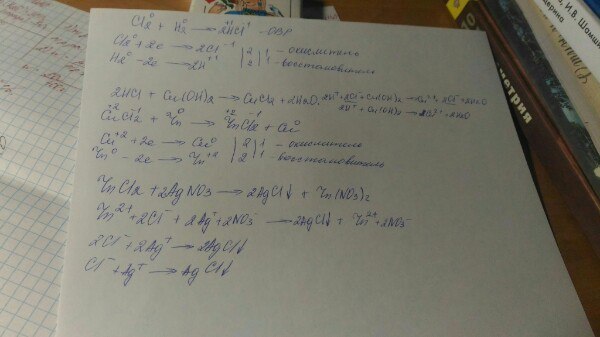 Cl₂⁰ + H₂⁰ → 2H⁺¹Cl⁻¹ - ОВР
Cl₂⁰ + 2e → 2Cl⁻¹ | 2 | 1 - окислитель
H₂⁰ - 2e → 2H⁺¹ | 2 | 1 - восстановитель
2HCl + Cu(OH)₂ → CuCl₂ + 2H₂O. 2H⁺ + 2Cl⁻ + Cu(OH)₂ → Cu²⁺ + 2Cl⁻ + 2H₂O
2H⁺ + Cu(OH)₂ → Cu²⁺ + 2H₂O
Cu⁺²Cl₂⁻¹ + Zn⁰ → Zn⁺²Cl₂⁻¹ + Cu⁰
Cu⁺² + 2e → Cu⁰ | 2 | 1 - окислитель
Zn⁰ - 2e → Zn⁺² | 2 | 1 - восстановитель
ZnCl₂ + 2AgNO₃ → 2AgCl↓ + Zn(NO₃)₂
Zn²⁺ + 2Cl⁻ + 2Ag⁺ + 2NO₃⁻ → 2AgCl↓ + Zn²⁺ + 2NO₃⁻
2Cl⁻ + 2Ag⁺ → 2AgCl↓
Cl⁻ + Ag⁺ → AgCl↓
И.В. Шомшин